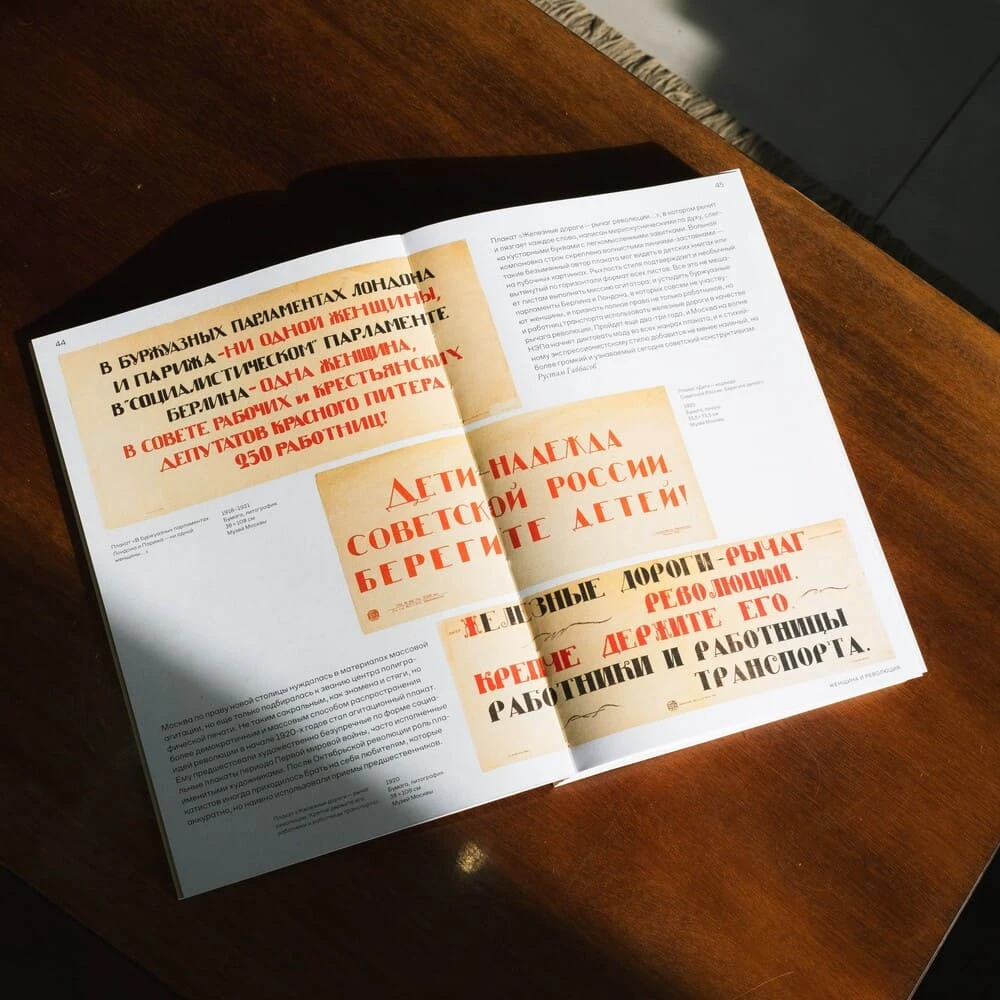 44
В БУРЖУАЗНЫХ ПАРЛАМЕНТАХ ЛОНДОНА
И ПАРИЖА-НИ ОДНОЙ ЖЕНЩИНЫ,
В "СОЦИАЛИСТИЧЕСКОМ" ПАРЛАМЕНТЕ
БЕРЛИНА-ОДНА ЖЕНЩИНА,
В СОВЕТЕ РАБОЧИХ и КРЕСТЬЯНСКИХ
ДЕПУТАТОВ КРАСНОГО ПИТЕРА
250 РАБОТНИЦ!
Плакат «В буржуазных парламентах
Лондона и Парижа — ни одной
женщины…»
1918–1921
Бумага, литография
36 × 109 см
Музей Москвы
ДЕТИ-НАДЕЖДА
СОВЕТСКОЙ РОССИИ.
БЕРЕГИТЕ ДЕТЕЙ!
ЖЕЛЕЗНЫЕ ДОРОГИ-РЫЧАГ
РЕВОЛЮЦИИ.
КРЕПЧЕ ДЕРЖИТЕ ЕГО
РАБОТНИКИ И РАБОТНИЦЫ
ТРАНСПОРТА.
Москва по праву новой столицы нуждалась в материалах массовой
агитации, но еще только подбиралась к званию центра полигра-
фической печати. Не таким сакральным, как знамена и стяги, но
более демократичным и массовым способом распространения
идей революции в начале 1920-х годов стал агитационный плакат.
Ему предшествовали художественно безупречные по форме социа-
льные плакаты периода Первой мировой войны, часто исполненные
именитыми художниками. После Октябрьской революции роль пла-
катистов иногда приходилось брать на себя любителям, которые
аккуратно, но наивно использовали приемы предшественников.
Плакат «Железные дороги — рычаг
революции. Крепче держите его
работники и работницы транспорта»
1920
Бумага, литография
36 × 109 см
Музей Москвы
45
Плакат «Железные дороги — рычаг революции…», в котором рычит
и лязгает каждое слово, написан мирискусническими по духу, слег-
ка кустарными буквами с легкомысленными завитками. Вольная
компоновка строк скреплена волнистыми линиями-заставками —
такие безымянный автор плаката мог видеть в детских книгах или
на лубочных картинках. Рыхлость стиля подтверждает и необычный
вытянутый по горизонтали формат всех листов. Все это не меша-
ет листам выполнять миссию агитатора: и устыдить буржуазные
парламенты Берлина и Лондона, в которых совсем не участву-
ют женщины, и признать полное право не только работников, но
и работниц транспорта использовать железные дороги в качестве
рычага революции. Пройдет ещё два-три года, и Москва на волне
НЭПа начнет диктовать моду во всех жанрах плаката, и к стихий-
ному экспрессионистскому стилю добавится не менее наивный, но
более громкий и узнаваемый сегодня советский конструктивизм.
Рустам Габбасов
Плакат «Дети — надежда
Советской России. Берегите детей!»
1920
Бумага, печать
Музей Москвы
ЖЕНЩИНА И РЕВОЛЮЦИЯ